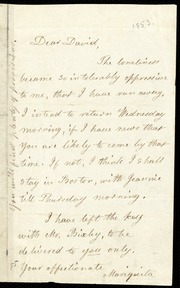 1853.
Dear David,
The loneliness
became so intolerably oppressive
to me, that I have run away.
I intend to return Wednesday
morning, if I have news that
You are likely to come by that
time. If not, I think I shall
stay in Boston, with Jeannie
till Thursday morning.
I have left the key
with Mr. Bixby, to be
delivered to you only.
Your affectionate
Mariquita
You will find plenty of